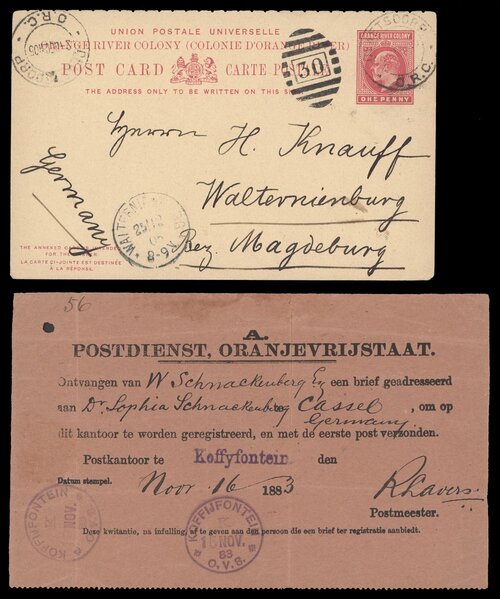 UNION POSTALE UNIVERSELLE
ORANGE RIVER COLONY (COLONIE D'ORANGE RIVER)
POST CARD CARTE POSTALE
THE ADDRESS ONLY TO BE WRITTEN ON THIS SIDE
O.R.C.
30
ORANGE RIVER COLONY
ONE PENNY
O.R.C.
Herrn H. Knauff
Walternienburg
Bez. Magdeburg
Germany
WALTERNIENBURG
8-9V.
THE ANNEXED CARD IS INTENDED
FOR THE ANSWER
LA CARTE CI-JOINTE EST DESTINÉE
À LA RÉPONSE.
56
A.
POSTDIENST, ORANJEVRIJSTAAT.
Ontvangen van W Schnackenberg Eq een brief geadresseerd
aan Dr Sophia Schnackenberg te Cassel, om op
Germany
dit kantoor te worden geregistreerd, en met de eerste post verzonden.
Postkantoor te Koffyfontein den
Datum stempel. Novr 16 1883 R Lavers
Postmeester.
KOFFIJFONTEIN
NOV.
KOFFIJFONTEIN
16 NOV.
83
O.V.S.
Deze kwitantie, na infulling, af te geven aan den persoon die een brief ter registratie aanbiedt.